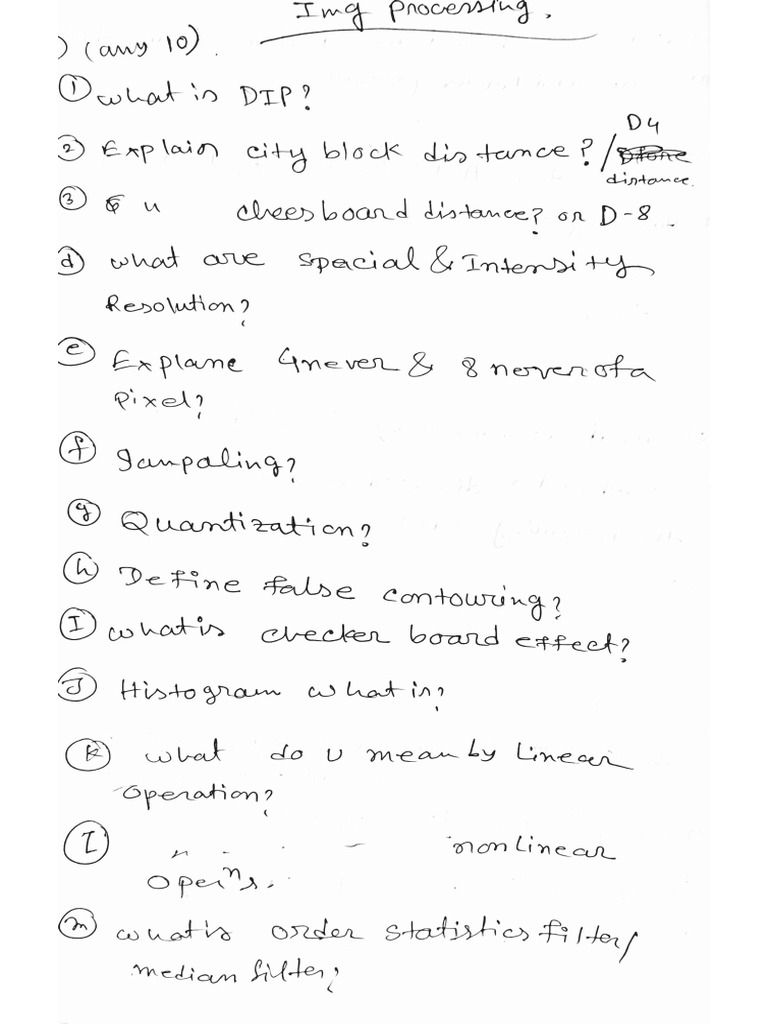 Img Processing.
) (any 10).
① what is DIP?
② Explain city block distance? / D4
distance.
③ " cheesboard distance? or D-8.
ⓓ what are spacial & Intensity
Resolution?
ⓔ Explane 4never & 8 never of a
Pixel?
ⓕ Sampaling?
ⓖ Quantization?
ⓗ Define false contouring?
Ⓘ what is checker board effect?
Ⓙ Histogram what is?
ⓚ what do u mean by Linear
Operation?
Ⓛ " - nonlinear
Opeins.
ⓜ what is order statistics filter/
median filter?